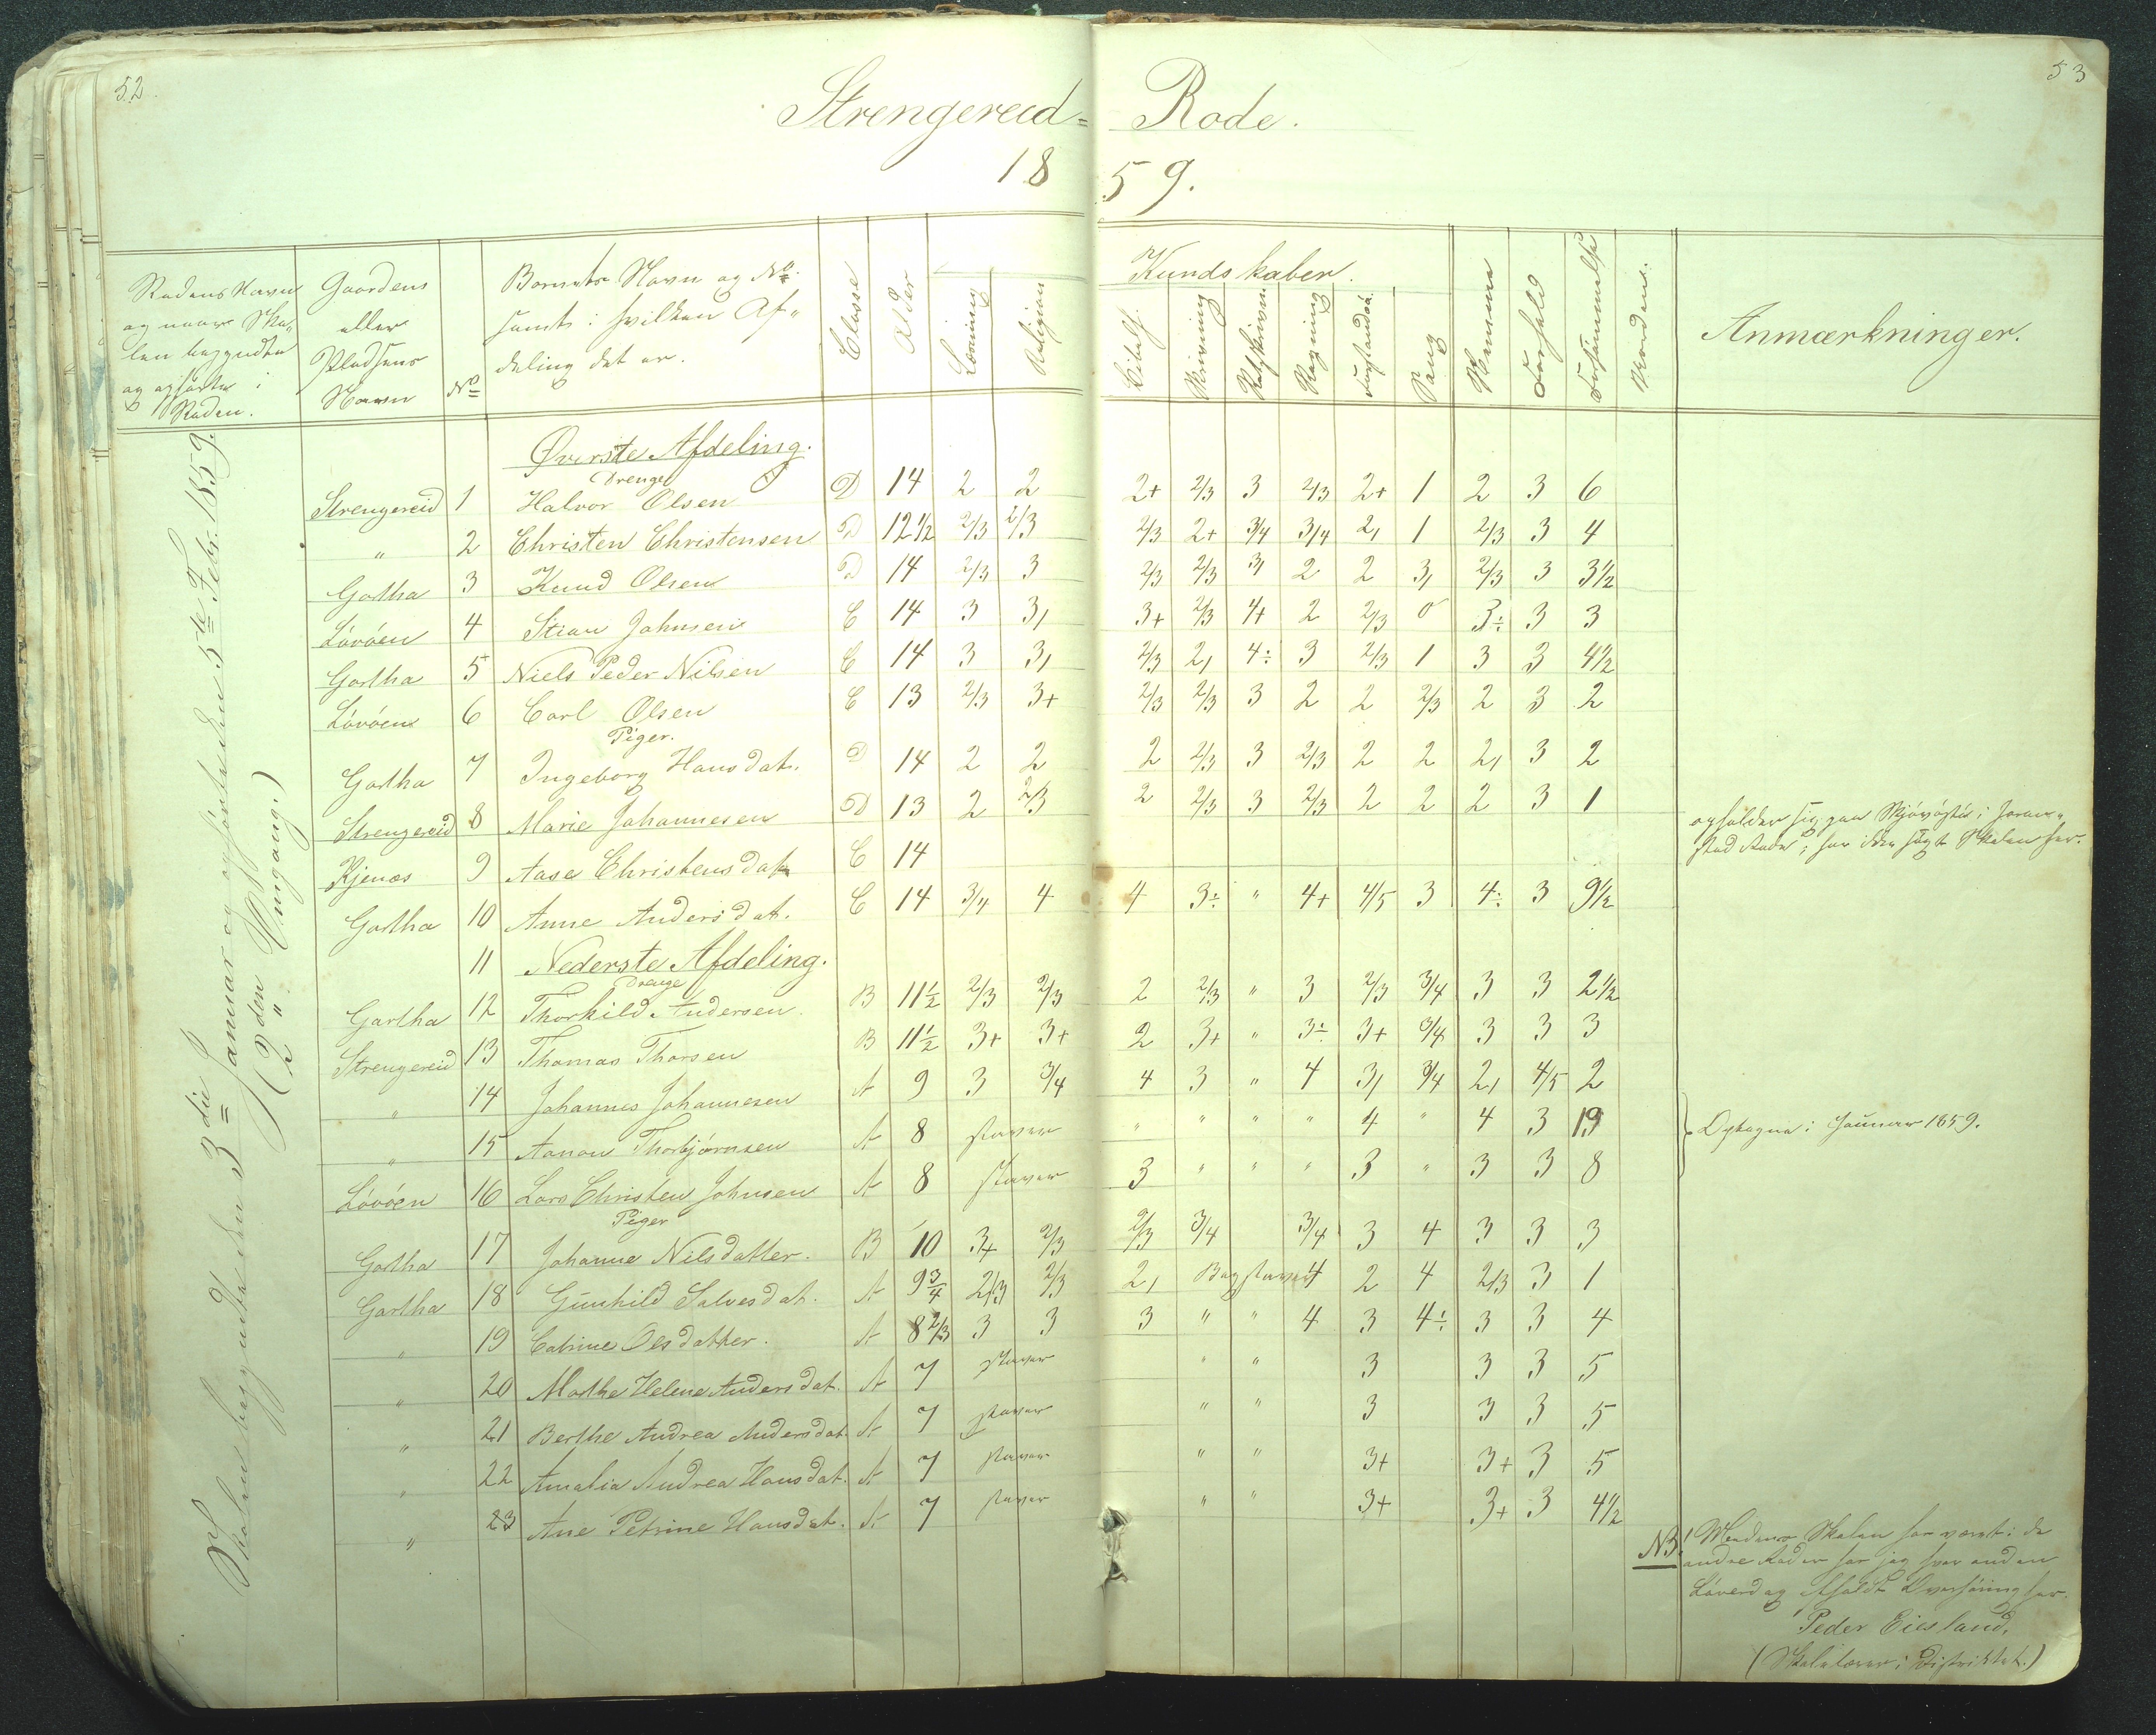 52.
53
Strengereid= Rode.
1859.
Rodens Navn og naar Skolen begyndte og ophørte i Roden.
Gaardens eller Pladsens Navn
No
Barnets Navn og No. samt i hvilken Afdeling det er.
Classe
Alder
Kundskaber.
Læsning
Religion
Bibelh.
Skrivning
Retskrivn.
Regning
Sang
Nemme
Forhold
Forsømmelse
Anmærkninger.
Skolen begyndte den 3die Januar og ophørte den 5te Febr. 1859.
(2den Omgang.)
Øverste Afdeling.
Drenge
Strengereid 1 Halvor Olsen D 14 2 2 2+ 2/3 3 2/3 2+ 1 2 3 6
" 2 Christen Christensen D 12 1/2 2/3 2/3 2/3 2+ 3/4 3/4 2, 1 2/3 3 4
Gartha 3 Knud Olsen D 14 2/3 3 2/3 2/3 3, 2 2 3, 2/3 3 3 1/2
Lövöen 4 Stian Johnsen C 14 3 3, 3+ 2/3 4+ 2 2/3 0 3÷ 3 3
Gartha 5 Niels Peder Nilsen C 14 3 3, 2/3 2, 4÷ 3 2/3 1 3 3 4 1/2
Lövöen 6 Carl Olsen C 13 2/3 3+ 2/3 2/3 3 2 2 2/3 2 3 2
Piger.
Gartha 7 Ingeborg Hansdat. D 14 2 2 2 2/3 3 2/3 2 2 2, 3 2
Strengereid 8 Marie Johannesen D 13 2 2/3 2 2/3 3 2/3 2 2 2 3 1
Kjenæs 9 Aase Christensdat C 14 opholder sig paa i
stad Rode, har ikke søgt Skolen her.
Gartha 10 Anne Andersdat. C 14 3/4 4 4 3÷ " 4+ 4/5 3 4÷ 3 9 1/2
11 Nederste Afdeling.
Drenge
Gartha 12 Thorkild Andersen. B 11 1/2 2/3 2/3 2 2/3 " 3 2/3 3/4 3 3 2 1/2
Strengereid 13 Thomas Thorsen B 11 1/2 3+ 3+ 2 3+ " 3÷ 3+ 3/4 3 3 3
" 14 Johannes Johannesen A 9 3 3/4 4 3 " 4 3, 3/4 2, 4/5 2
" 15 Aanon Thorbjörnsen A 8 staver " " " " 4 " 4 3 19 } Optagne i Januar 1859.
Lövöen 16 Lars Christen Johnsen A 8 staver 3 " " " 3 " 3 3 8
Piger
Gartha 17 Johanne Nilsdatter. B 10 3+ 2/3 2/3 3/4 3/4 3 4 3 3 3
Gartha 18 Gunhild Salvesdat. A 9 3/4 2/3 2/3 2, Bogstaver 4 2 4 2/3 3 1
" 19 Catrine Olsdatter. A 8 2/3 3 3 3 " " 4 3 4÷ 3 3 4
" 20 Marthe Helene Andersdat. A 7 staver " " 3 3 3 5
" 21 Berthe Andrea Andersdat. A 7 staver " " 3 3 3 5
" 22 Amalia Andrea Hansdat. A 7 staver " " 3+ 3+ 3 5
" 23 Ane Petrine Hansdat. A 7 staver " " 3+ 3+ 3 4 1/2
NB! Medens Skolen har været i de
andre Roder har jeg hver anden
Løverdag afholdt Overhøring her.
Peder Eiesland,
(Skolelærer i Distriktet.)